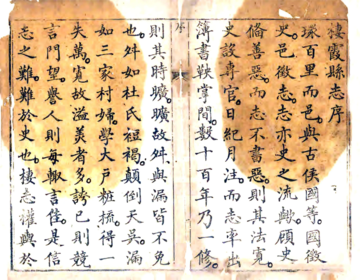 棲霞縣志序
環百里而邑與古侯國等國徵
史邑徵志志亦史之流歟顧史
備善惡而志不書惡則其法寬
史設專官日紀月注而志率出
簿書鞅掌間數十百年乃一修
序
則其時曠曠故舛與漏皆不免
也舛如杜氏裋褐顛倒天吳漏
如三家村婦學大戶粧梳得一
失萬寬故溢美者多誇已則競
言門望譽人則每輙言佳是信
志之難難於史也棲志權輿於